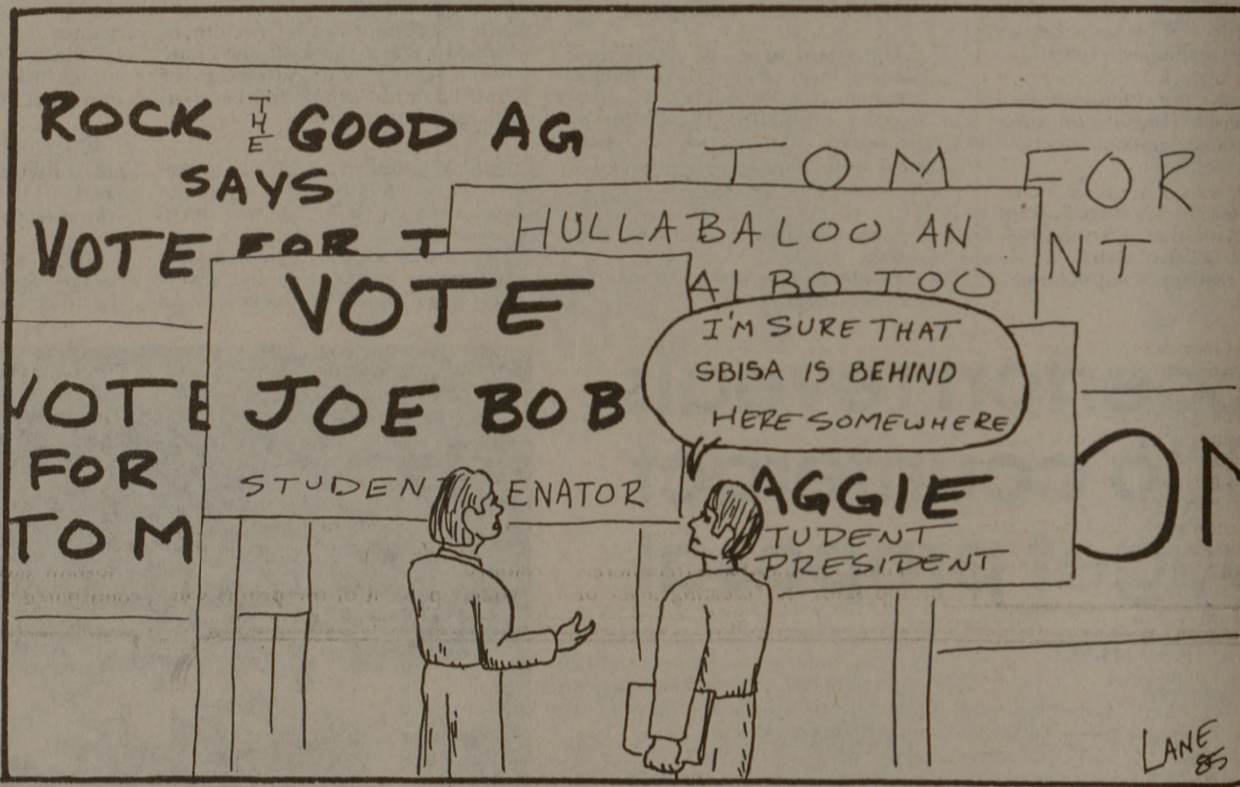 ROCK THE GOOD AG
SAYS
VOTE FOR T
TOM FOR
NT
HULLABALOO AN
ALBO TOO
VOTE
JOE BOB
STUDENT ENATOR
I'M SURE THAT
SBISA IS BEHIND
HERE SOMEWHERE
VOTE
FOR
TOM
AGGIE
TUDENT
PRESIDENT
ON
LANE
85